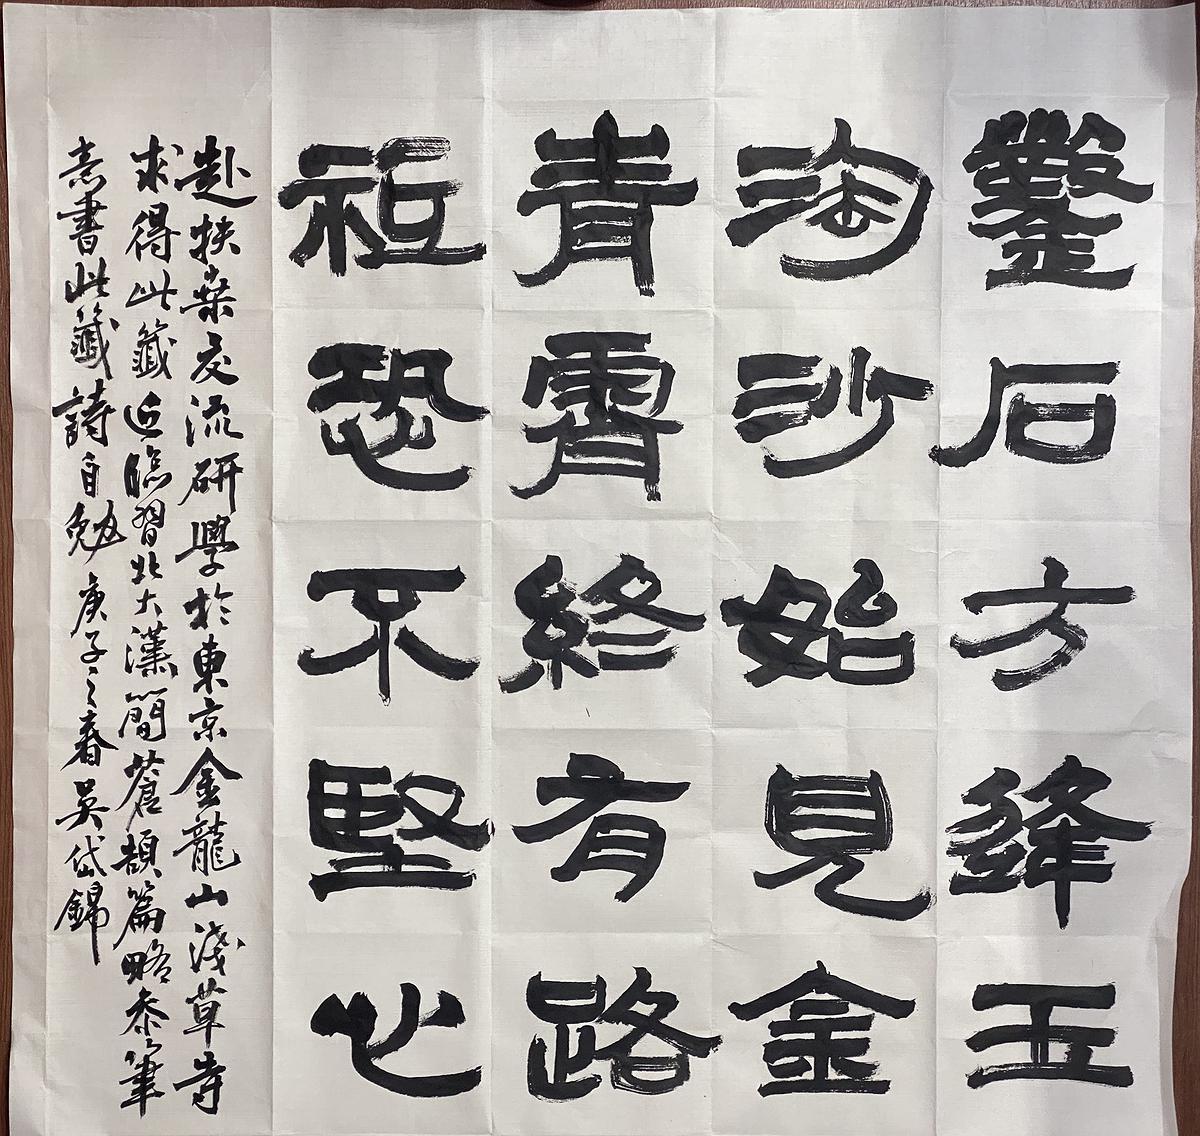 鑿石方逢玉
淘沙始見金
青霄終有路
祗恐不堅心
赴扶桒交流研學於東京金龍山淺草寺
求得此籤近臨習北大漢簡蒼頡篇略叅筆
意書此籤詩自勉庚子之春吳岱錦